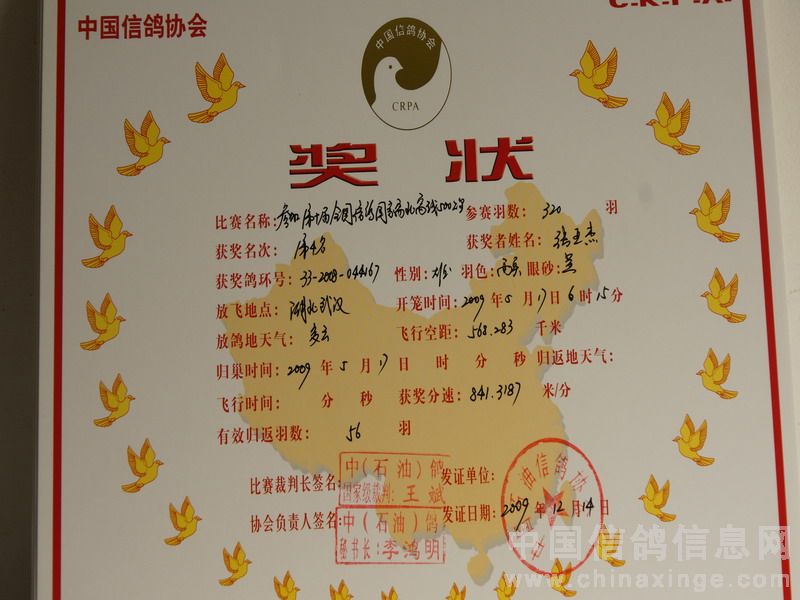 中国信鸽协会
C.R.P.A.
中国信鸽协会
CRPA
奖 状
比赛名称: 参加第十届全国信鸽 参赛羽数: 320 羽
获奖名次: 第4名 获奖者姓名: 张玉杰
获奖鸽环号: 33-2008-044167 性别: 雄 羽色: 雨点 眼砂: 黄
放飞地点: 湖北武汉 开笼时间: 2009 年 5 月 17 日 6 时 15 分
放鸽地天气: 多云 飞行空距: 568.283 千米
归巢时间: 2009 年 5 月 17 日 时 分 秒 归返地天气:
飞行时间: 分 秒 获奖分速: 841.3187 米/分
有效归返羽数: 56 羽
比赛裁判长签名: 中(石油)鸽 发证单位:
国家级裁判: 王斌
协会负责人签名: 中(石油)鸽 发证日期: 2009 年 12 月 14 日
秘书长: 李鸿明
油信鸽协
中国信鸽信息网
www.chinaxinge.com